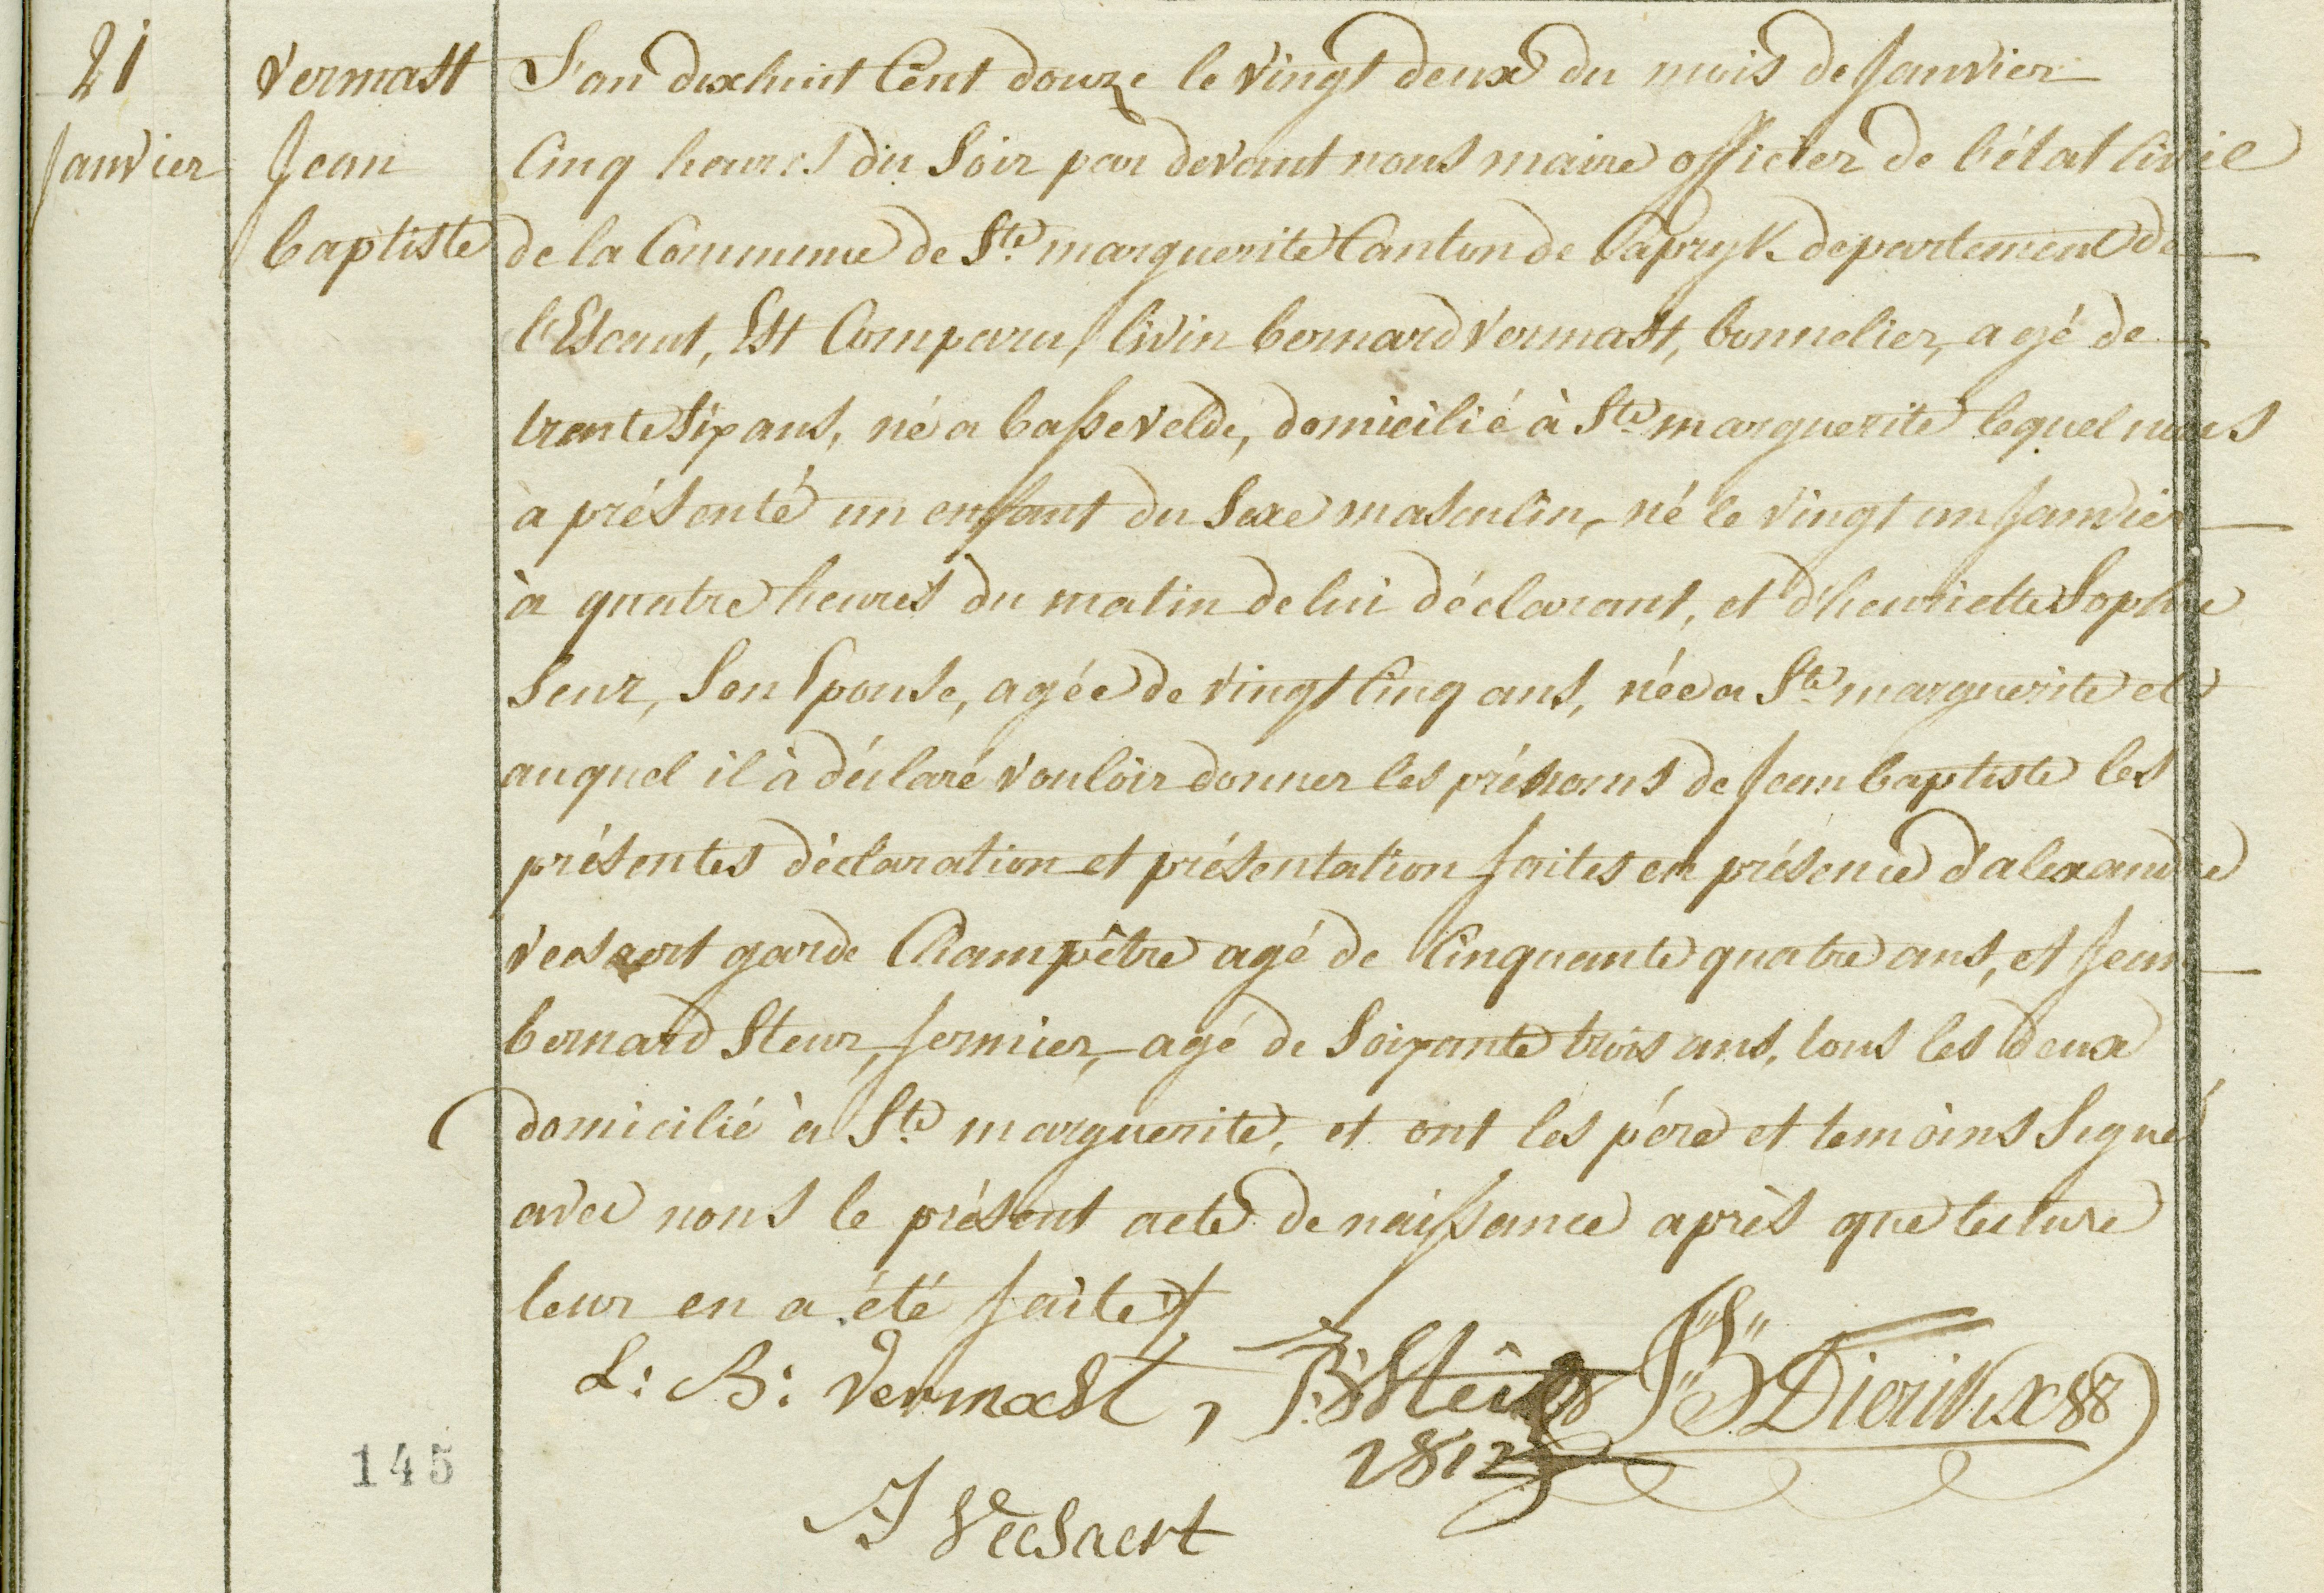 21
Janvier
Vermast
Jean
baptiste
L'an dixhuit Cent douze le vingt deux du mois de Janvier
Cinq heures du Soir par devant nous maire officier de l'état Civil
de la Commune de Ste marguerite Canton de Capryk departement de
l'Escaut, Est Comparu livin bernard Vermast, bonnelier, agé de
trente Six ans, né a bassevelde, domicilié à Ste marguerite lequel nous
a présenté un enfant du Sexe masculin, né le vingt un Janvier
à quatre heures du matin de lui déclarant, et d'henriette Sophie
Seur, Son Epouse, agée de vingt Cinq ans, née a Ste marguerite et
auquel il à déclaré vouloir donner les prénoms de Jean baptiste les
présentes déclaration et présentation faites en présence d'alexandre
veesaert garde Champêtre agé de Cinquante quatre ans, et Jean
bernard Steur, fermier, agé de Soixante trois ans, tous les deux
domicilié à Ste marguerite, et ont les pére et temoins Signé
avec nous le présent acte de naissance aprés que lecture
leur en a été faite
L: B: Vermast, JB Steur JB Dierikx
1812
145
J Veesaert